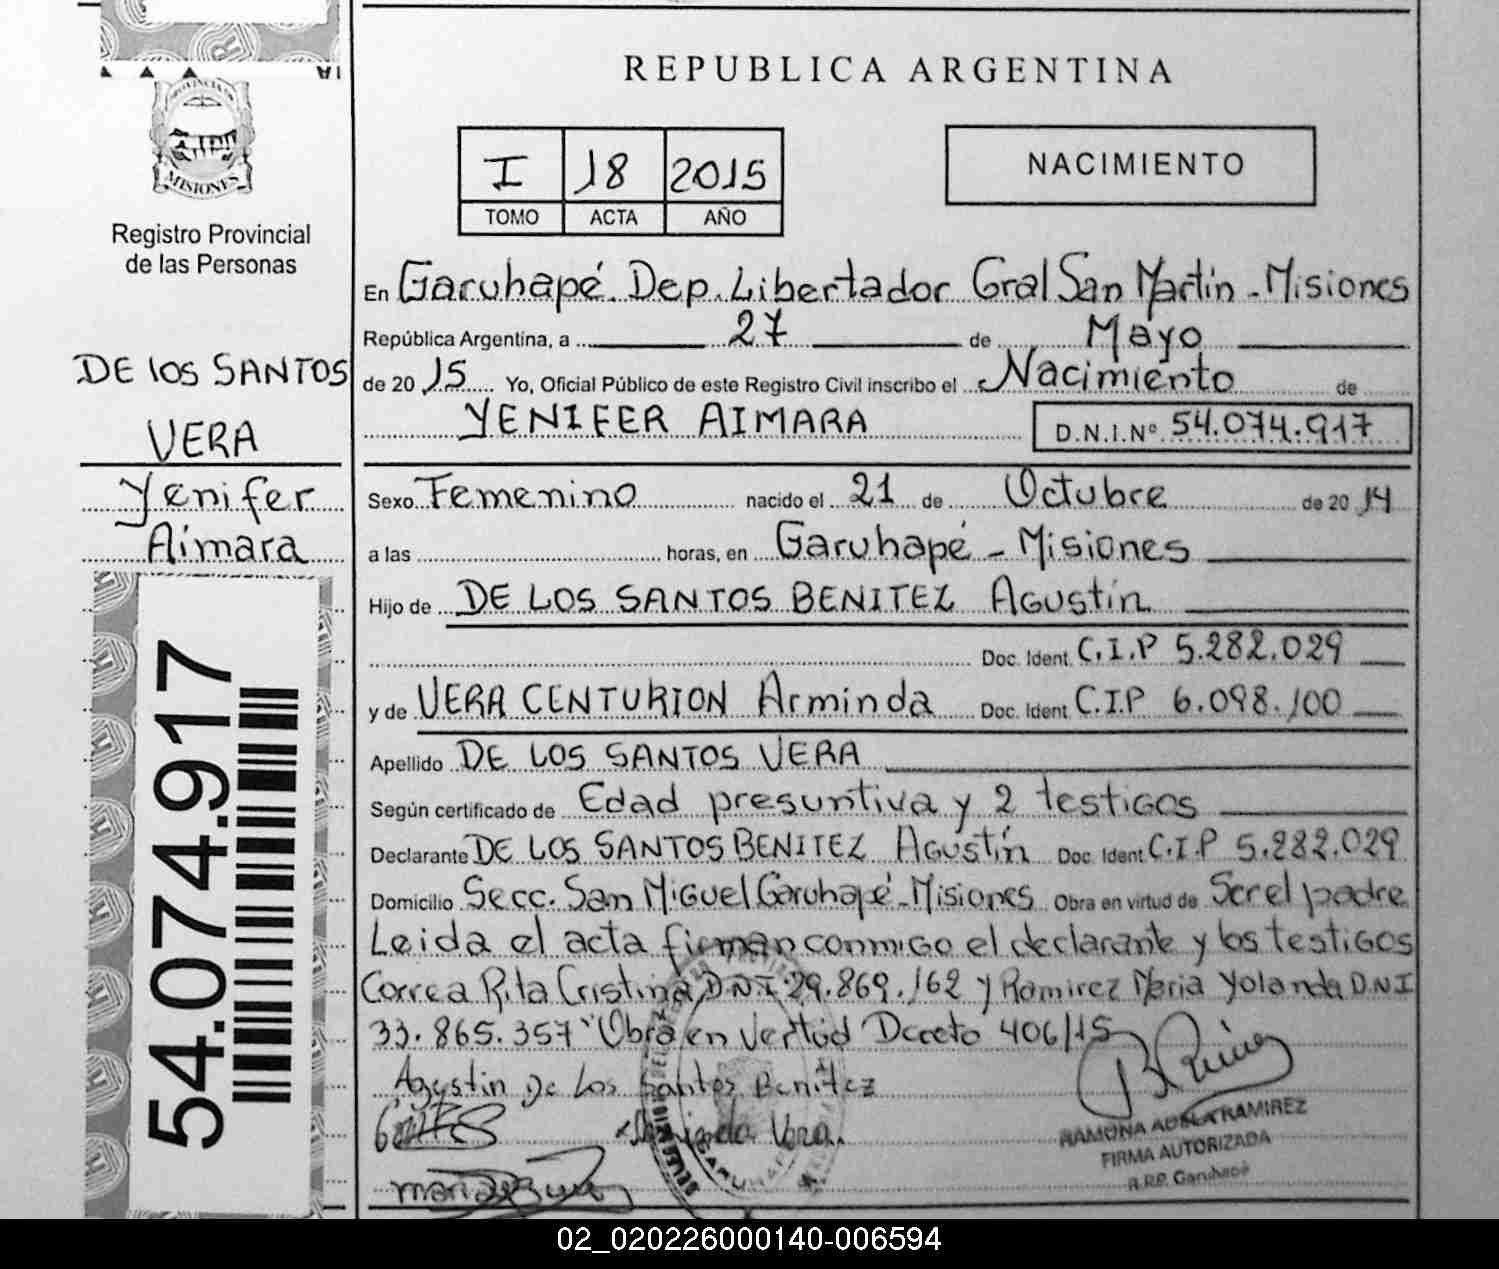 REPUBLICA ARGENTINA
MISIONES
Registro Provincial
de las Personas
I 18 2015
TOMO ACTA AÑO
NACIMIENTO
DE los SANTOS
VERA
Yenifer
Aimara
54.074.917
En Garuhapé. Dep. Libertador Gral San Martin - Misiones
República Argentina, a 27 de Mayo
de 2015 Yo, Oficial Público de este Registro Civil inscribo el Nacimiento de
YENIFER AIMARA D.N.I.Nº 54.074.917
Sexo Femenino nacido el 21 de Octubre de 2014
a las horas, en Garuhapé - Misiones
Hijo de DE LOS SANTOS BENITEZ Agustín
Doc. Ident. C.I.P 5.282.029
y de VERA CENTURION Arminda Doc. Ident. C.I.P 6.098.100
Apellido DE LOS SANTOS VERA
Según certificado de Edad presuntiva y 2 testigos
Declarante DE LOS SANTOS BENITEZ Agustín Doc. Ident. C.I.P 5.282.029
Domicilio Secc. San Miguel Garuhapé - Misiones Obra en virtud de Ser el padre
Leida el acta firman conmigo el declarante y los testigos
Correa Rita Cristina D.N.I 29.869.162 y Ramirez Maria Yolanda D.N.I
33.865.357 "Obra en Vertud Decreto 406/15
Agustin De Los Santos Benitez
Vera
RAMONA RAMIREZ
FIRMA AUTORIZADA
R.R.P. Garuhapé
02_020226000140-006594